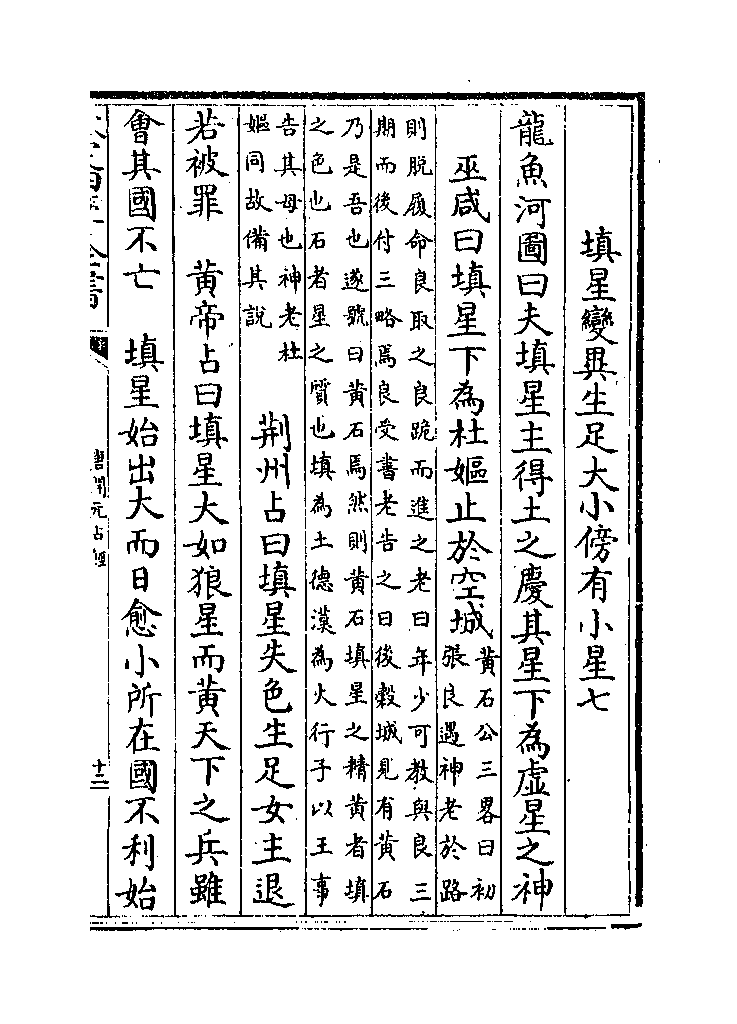 填星變異生足大小傍有小星七
龍魚河圖曰夫填星主得土之慶其星下為虛星之神
巫咸曰填星下為杜嫗止於空城
黃石公三畧曰初
張良遇神老於路
則脫履命良取之良跪而進之老曰年少可教與良三
期而後付三略焉良受書老告之曰後穀城見有黃石
乃是吾也遂號曰黃石焉然則黃石填星之精黃者填
之色也石者星之質也填為土德漢為火行子以王事
告其母也神老杜
嫗同故備其說
荆州占曰填星失色生足女主退
若被罪　黃帝占曰填星大如狼星而黃天下之兵雖
會其國不亡　填星始出大而日愈小所在國不利始
唐開元占經
十二